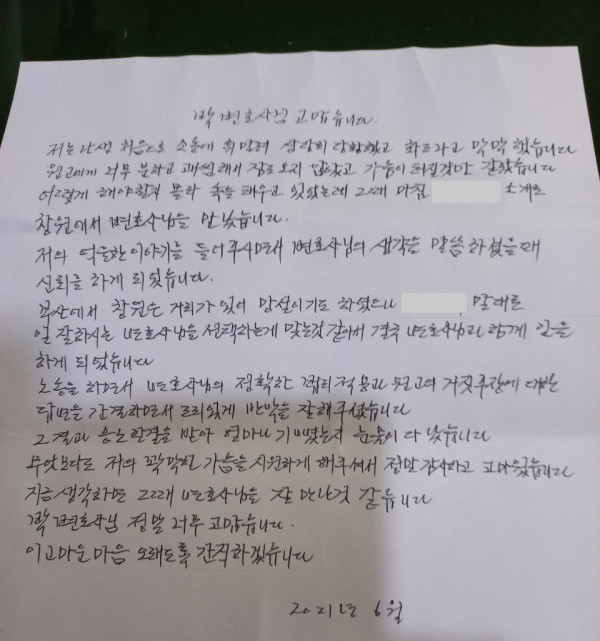 박변호사님 고맙습니다.
저는 난생 처음으로 소송에 휘말려 상당히 당황했고 화도나고 막막했습니다
원고에게 너무 분하고 괘씸해서 잠도 오지 않았고 가슴이 터질것만 같았습니다
어떻게 해야할지 몰라 속을 태우고 있었는데 그때 마침 소개로
창원에서 변호사님을 만났습니다.
저의 억울한 이야기를 들어주시면서 변호사님의 생각을 말씀하셨을때
신뢰를 하게 되었습니다.
부산에서 창원은 거리가 있어 망설이기도 하였으나 말대로
일 잘하시는 변호사님을 선택하는게 맞는것 같아서 결국 변호사님과 함께 일을
하게 되었습니다
소송을 하면서 변호사님의 정확한 법리적용과 원고의 거짓주장에 대한
답변을 간결하면서 조리있게 반박을 잘해주셨습니다
그결과 승소판결을 받아 얼마나 기뻤는지 눈물이 다 났습니다
무엇보다도 저의 꽉막힌 가슴을 시원하게 해주셔서 정말 감사하고 고마웠습니다
지금 생각하면 그때 변호사님을 잘 만난것 같습니다
박변호사님 정말 너무 고맙습니다.
이고마운마음 오래도록 간직하겠습니다
2021년 6월